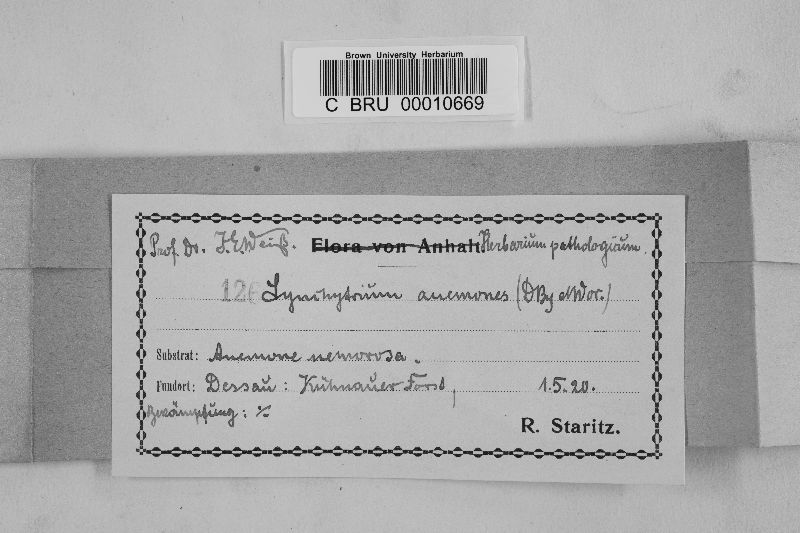 Brown University Herbarium
C BRU 00010669
Prof. Dr. J.E. Weiß. Flora von Anhalt. Herbarium pathologicum
126 Synchytrium anemones (DBy et Wor.)
Substrat: Anemone nemorosa.
Fundort: Dessau: Kühnauer Forst, 1.5.20.
Bekämpfung: ./.
R. Staritz.